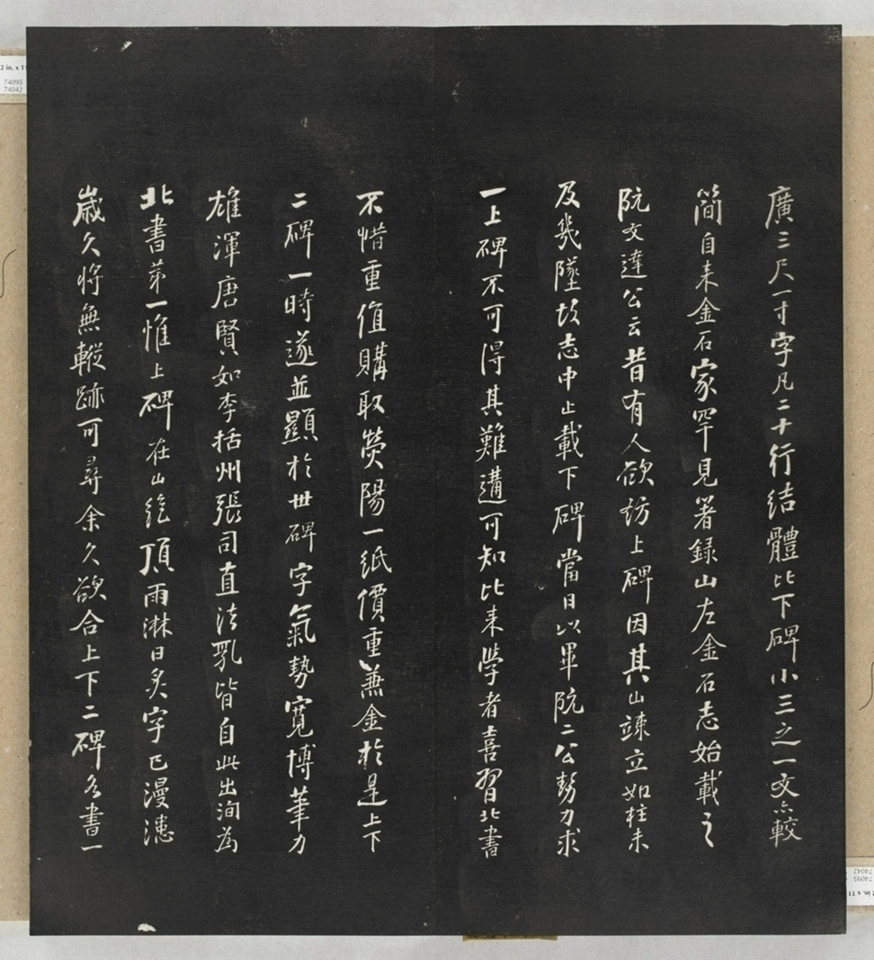 廣三尺一寸字凡二十行結體比下碑小三之一文亦較
簡自来金石家罕見著録山左金石志始載之
阮文達公云昔有人欲訪上碑因其山竦立如柱未
及幾墜故志中止載下碑當日以畢阮二公勢力求
一上碑不可得其難遘可知比来學者喜習北書
不惜重值購取熒陽一紙價重兼金於是上下
二碑一時遂並顯於世碑字氣勢寬博筆力
雄渾唐賢如李括州張司直法乳皆自此出洵為
北書第一惟上碑在山絶頂雨淋日炙字已漫漶
歲久將無蹤跡可尋余久欲合上下二碑各書一
2 in. x 11
74095
74042